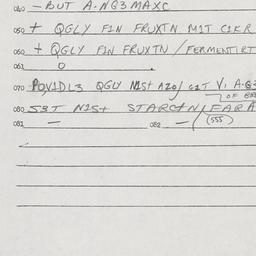 040 - BUT A.NG3 MAXC
050 + QGLY FIN FRUXTN MIT CIKR
060 + QGLY FIN FRUXTN / FERMENTIRT
061 0 .
070 POVIDL3 QGLY MIST AZO/ GIT V. A.G3
OF
080 S3T NIST STARCTN/ FARA
081 - 082 - (555)